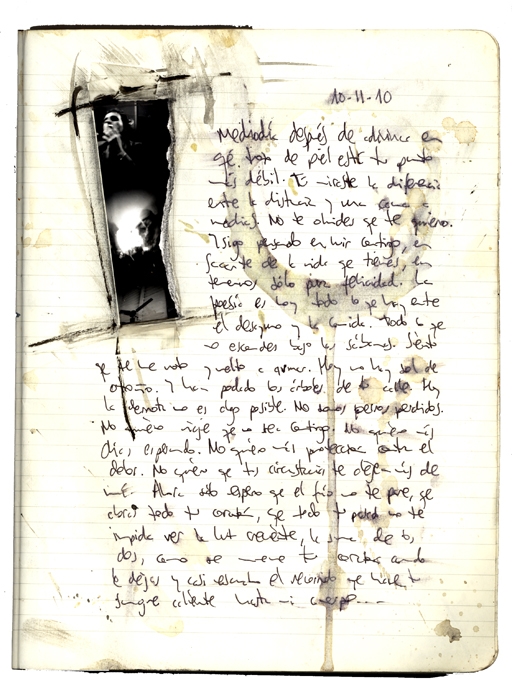 10-11-10
Mediodía después de adivinar en
qé trozo de piel está tu punto
más débil. Tú mides la diferencia
entre la distancia y una cama a
medias. No te olvides qe te quiero.
Y sigo pensando en huir contigo, en
sacarte de la vida qe tienes, en
tenernos sólo por felicidad. La
poesía es hoy todo lo qe hay entre
el desayuno y la comida. Todo lo qe
no escondes bajo las sábanas. Siento
qe me he roto y vuelto a armar. Hoy no hay sol de
otoño. Y han podado los árboles de la calle. Hoy
la derrota no es algo posible. No somos perros perdidos.
No quiero viaje qe no sea contigo. No quiero más
días esperando. No quiero más protecciones contra el
dolor. No quiero qe tus circunstancias te alejen más de
mí. Ahora sólo espero qe el frío no te pare, qe
abras todo tu corazón, qe todo tu pasado no te
impida ver la luz creciente, la suma de los
dos, como se mueve tu corazón cuando
le dejas y casi escucho el recorrido qe hace tu
sangre caliente hasta mi cuerpo....